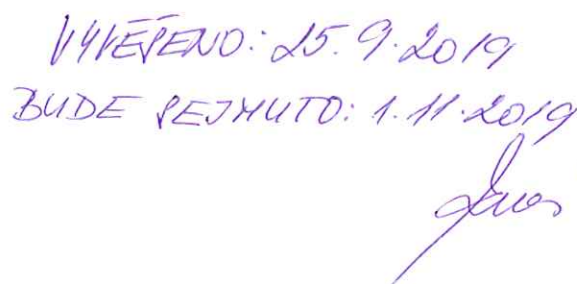 VYVĚŠENO: 25.9.2019
BUDE SEJMUTO: 1.11.2019